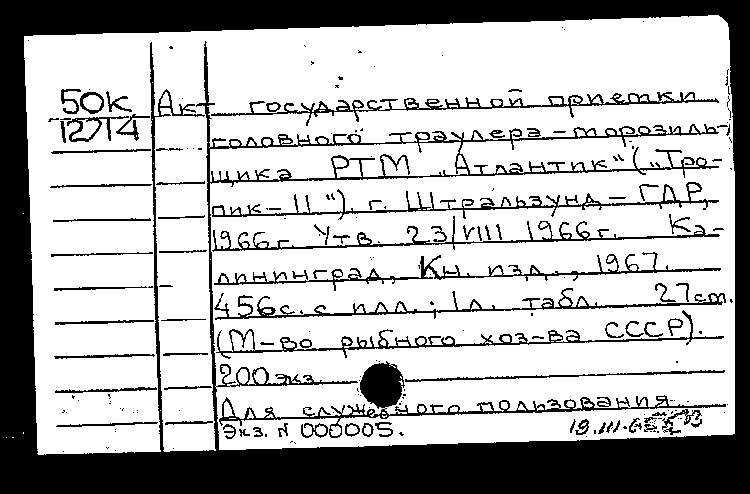 50к Акт государственной приемки
12714 головного траулера-морозиль-
щика РТМ „Атлантик“ („Тро-
пик-II“). г. Штральзунд-ГДР,
1966г. Утв. 23/VIII 1966г. Ка-
лининград, Кн. изд., 1967.
456с. с илл.; 1л. табл. 27cm.
(М-во рыбного хоз-ва СССР).
200экз.
Для служебного пользования
Экз. № 000005.